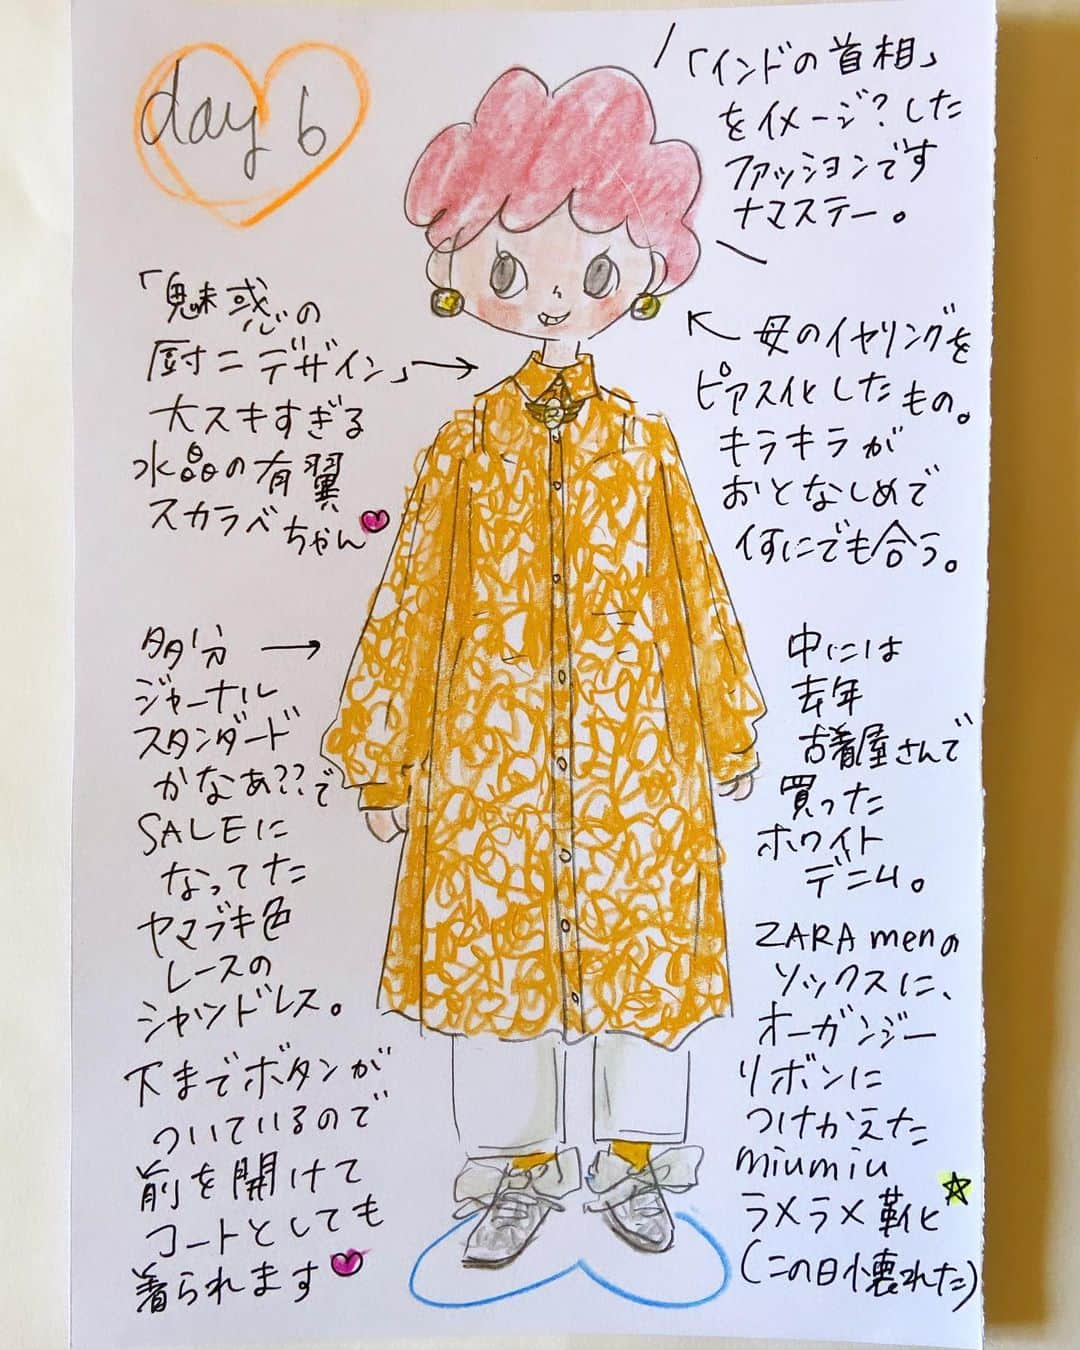 day 6
「インドの首相」
をイメージ?した
ファッションです
ナマステー。
「魅惑の
厨二デザイン」
大スキすぎる
水晶の有翼
スカラベちゃん
母のイヤリングを
ピアス化としたもの。
キラキラが
おとなしめで
何にでも合う。
多分
ジャーナル
スタンダード
かなあ??で
SALEに
なってた
ヤマブキ色
レースの
シャツドレス。
下までボタンが
ついているので
前を開けて
コートとしても
着られます
中には
去年
古着屋さんで
買った
ホワイト
デニム。
ZARA menの
ソックスに、
オーガンジー
リボンに
つけかえた
miumiu
ラメラメ靴
(この日壊れた)